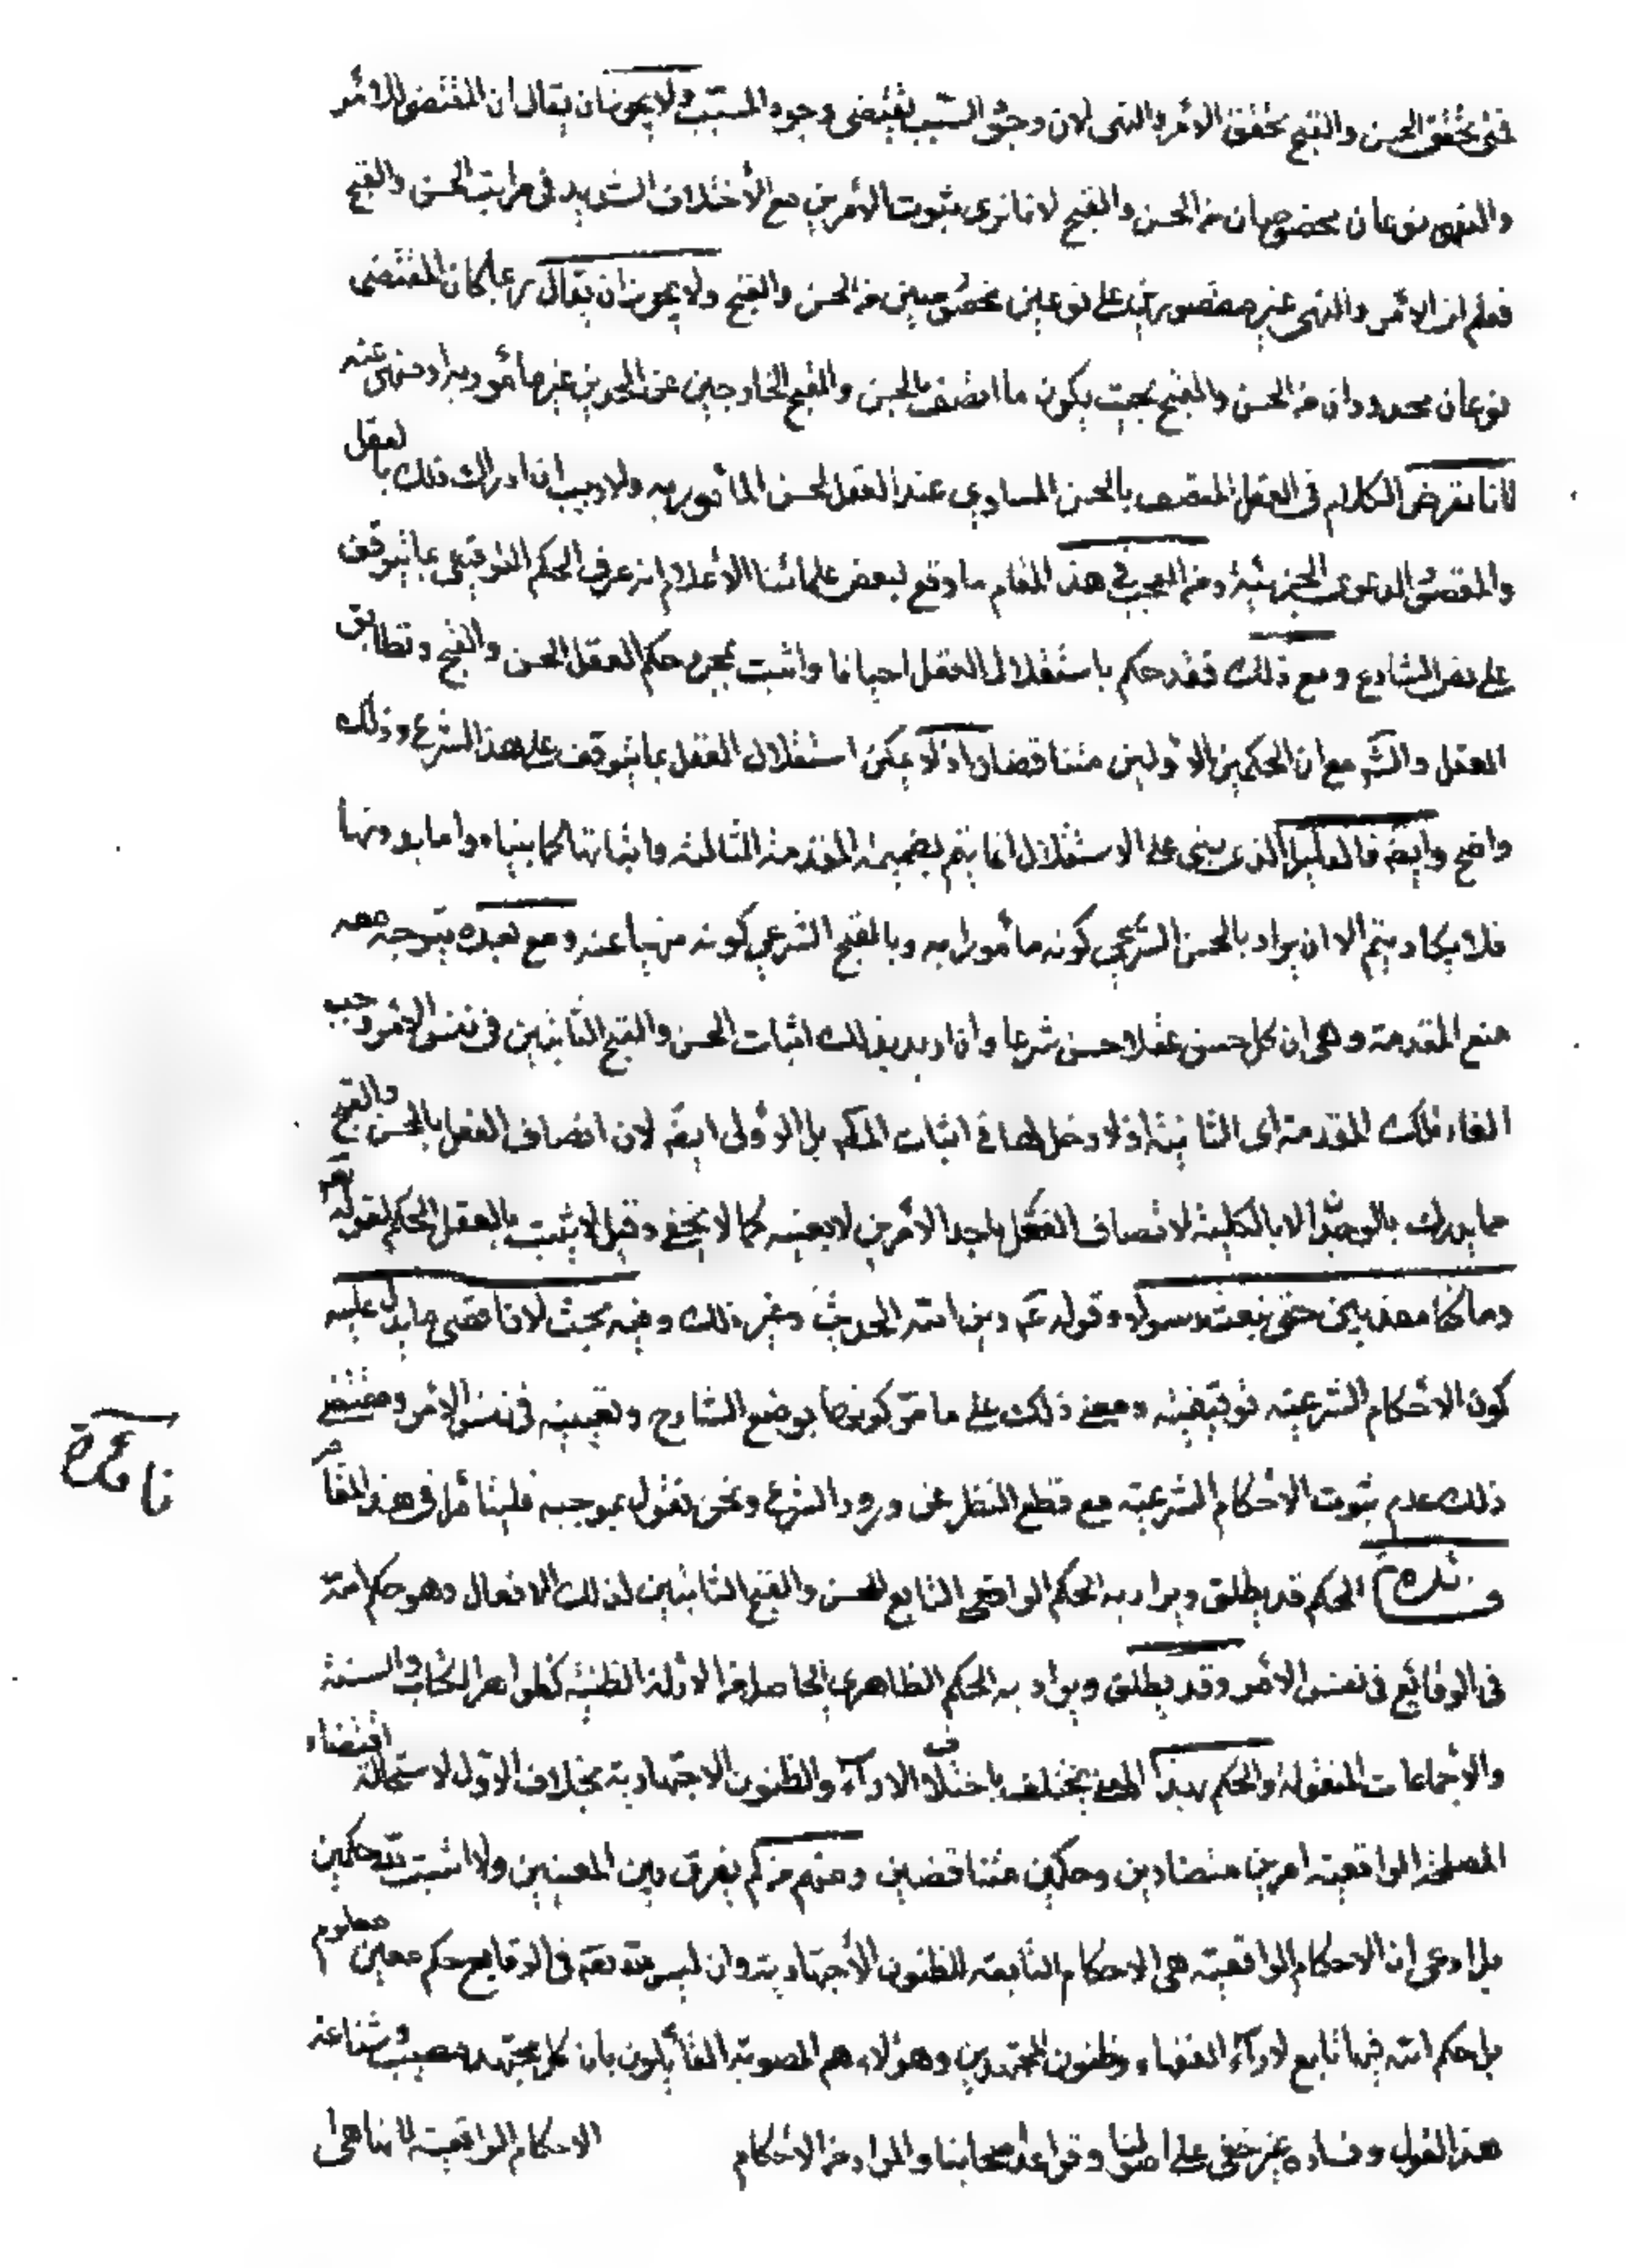 فمتى تحقق الحسن والقبح تحقق الأمر والنهى لان وجود السبب يقتضى وجود المسبب ولا يجوز ان يقال ان المقتضى للأمر
والنهى نوعان مخصوصان من الحسن والقبح لانا نرى ثبوت الأمرين مع الأختلاف الشديد فى مراتب الحسن والقبح
فعلم ان الأمر والنهى غير مقصورين على نوعين مخصوصين من الحسن والقبح ولا يجوز ان يقال ربما كان المقتضى
نوعان محدودان من الحسن والقبح بحيث يكون ما اتصف بالحسن والقبح الخارجين عن الحدين غير مأمور به او منهى عنه
لانا نفرض الكلام فى الفعل المتصف بالحسن المساوى عند العقل لحسن المأمور به ولا ريب ان ادراك ذلك بالعقل
والمقصود الدعوى الجزئية ومن العجب فى هذا المقام ما وقع لبعض علمائنا الأعلام انه عرف الحكم التوقيفى بما يتوقف
على نص الشارع ومع ذلك فقد حكم باستقلال العقل احيانا واثبت بمجرد حكم العقل الحسن والقبح وتطابق
العقل والشرع مع ان الحكمين الأولين متناقضان اذ لا يمكن استقلال العقل بما يتوقف على هذا الشرع وذلك
واضح وايضا فالدليل الذى يبنى على الاستقلال انما يتم بضميمة المقدمة الثالثة واثباتها كما بيناه واما بدونها
فلا يكاد يتم الا ان يراد بالحسن الشرعى كونه مأمورا به وبالقبح الشرعى كونه منهيا عنه ومع بعده يتوجه معه
منع المقدمة وهى ان كل حسن عقلا حسن شرعا وان اريد بذلك اثبات الحسن والقبح الثابتين فى نفس الأمر وجب
الغاء تلك المقدمة اى الثانية اذ لا دخل لها فى اثبات الحكم بل الأولى ايضا لان اتصاف الفعل بالحسن والقبح
مما يدرك بالوجدان لا بالكلية لاتصاف الفعل باحد الأمرين لا بعينه كما لا يخفى وقيل لا يثبت بالعقل الحكم لقوله تعالى
وما كنا معذبين حتى نبعث رسولا وقوله عم دين الله الحديث وغير ذلك وفيه بحث لان اقصى ما يدل عليه
كون الأحكام الشرعية توقيفية ومعنى ذلك على ما مر كونها بوضع الشارع وتعيينه فى نفس الأمر ومقتضى
ذلك عدم ثبوت الأحكام الشرعية مع قطع النظر عن ورود الشرع ونحن نقول بموجبه فليتأمل فى هذا المقام
فائدة
الحكم قد يطلق ويراد به الحكم الواقعى التابع للحسن والقبح الثابتين لذلك الافعال وهو حكم الله
فى الوقائع فى نفس الامر وقد يطلق ويراد به الحكم الظاهرى الحاصل من الأدلة الظنية كظواهر الكتاب والسنة
والأجماعات المنقولة والحكم بهذا المعنى يختلف باختلاف الاراء والظنون الاجتهادية بخلاف الأول لاستحالة اقتضاء
المصلحة الواقعية امرين متضادين وحكمين متناقضين ومنهم من لم يفرق بين المعنيين ولا اثبت لله حكمين
بل ادعى ان الاحكام الواقعية هى الاحكام التابعة للظنون الأجتهادية وان ليس لله تعالى فى الوقايع حكم معين معلوم
بل حكم الله فيها تابع لاراء الفقهاء وظنون المجتهدين وهؤلاء هم المصوبة القائلون بان كل مجتهد مصيب وشناعة
هذا القول وفساده غير خفى على اصولنا وقواعد اصحابنا والمراد من الاحكام الاحكام الواقعية لانها هى